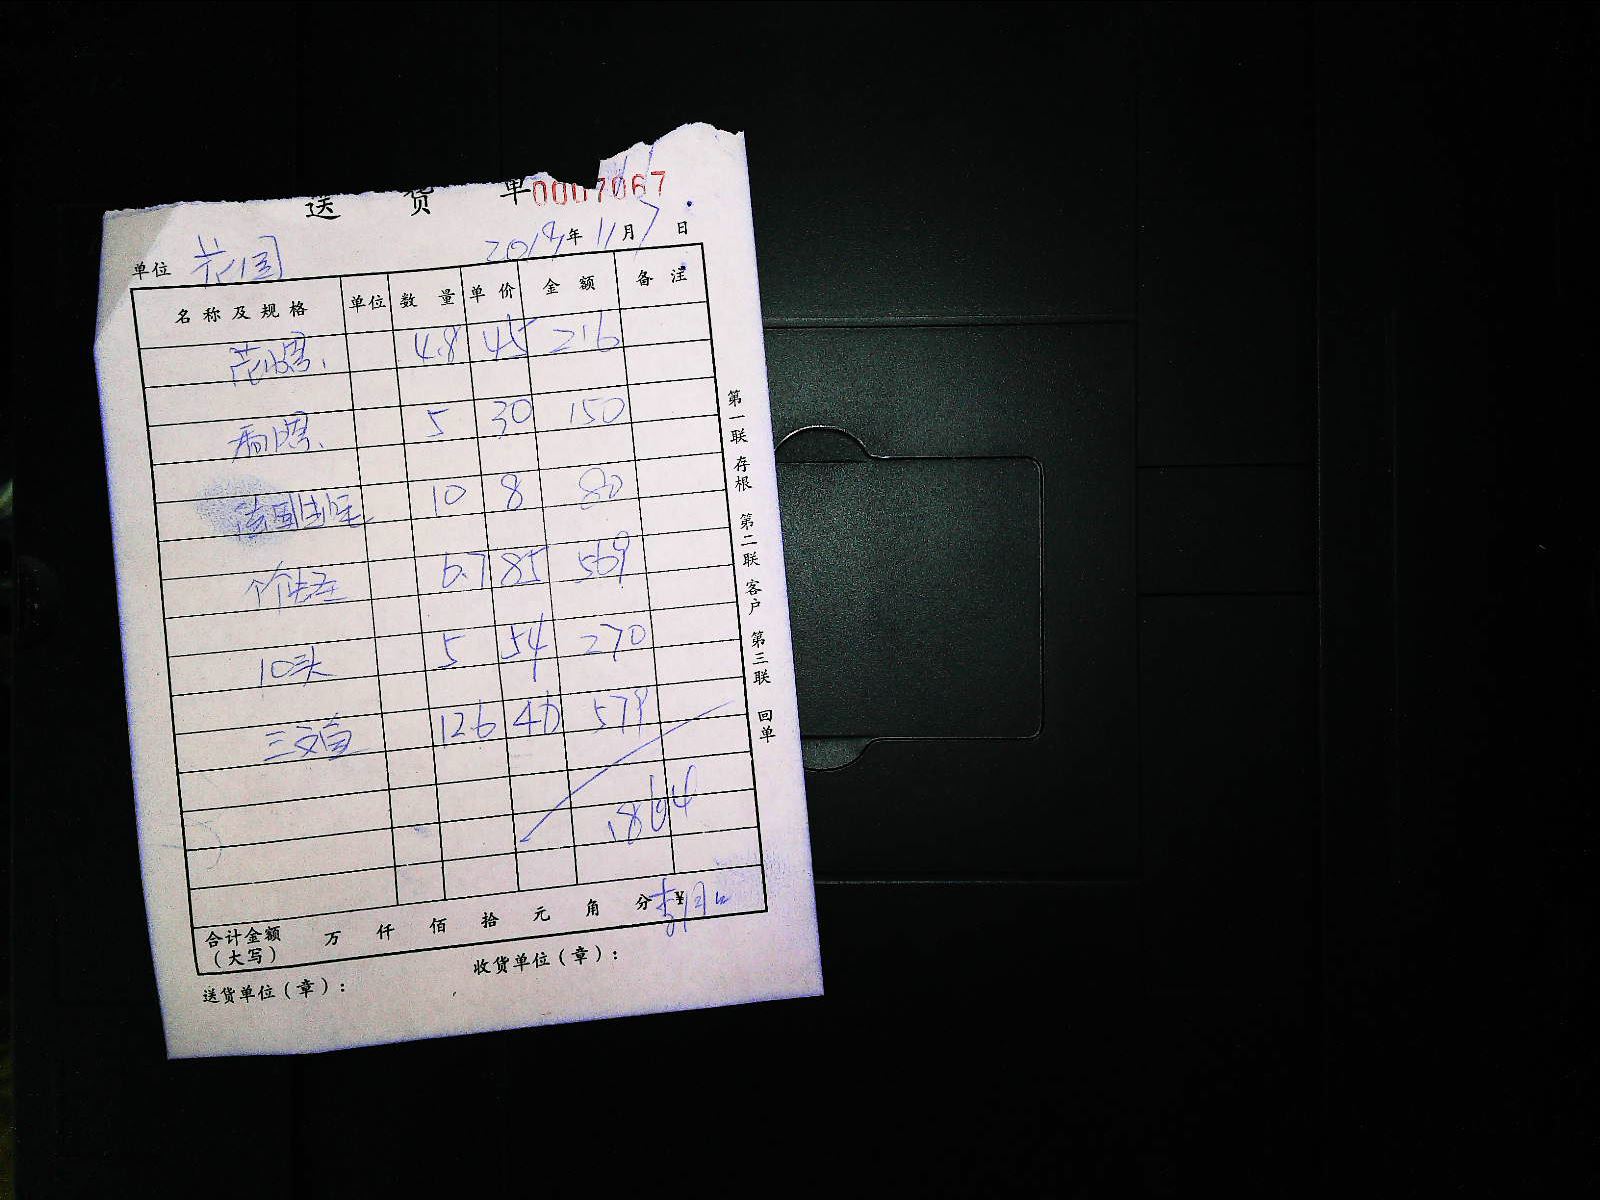 送 货 单 0007067
单位 花园 2019年 11月 7日
名称及规格 单位 数量 单价 金额 备注
4.8 45 216
5 30 150
10 8 80
6.7 85 569
10头 5 54 270
三文鱼 12.6 46 579
1864
合计金额（大写） 万 仟 佰 拾 元 角 分 ¥
送货单位（章）： 收货单位（章）：
第一联 存根 第二联 客户 第三联 回单